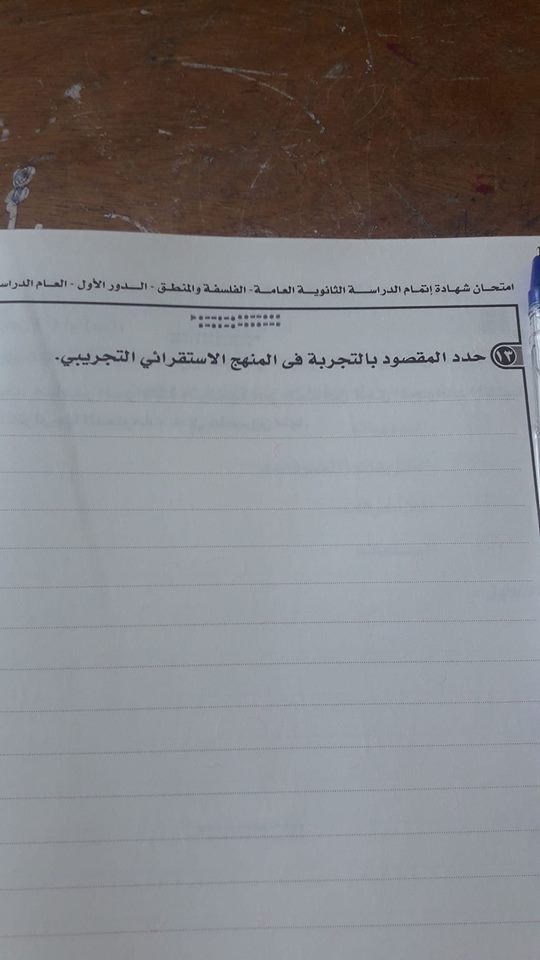 امتحان شهادة إتمام الدراسة الثانوية العامة - الفلسفة والمنطق - الدور الأول - العام
١٣ حدد المقصود بالتجربة فى المنهج الاستقرائي التجريبي.